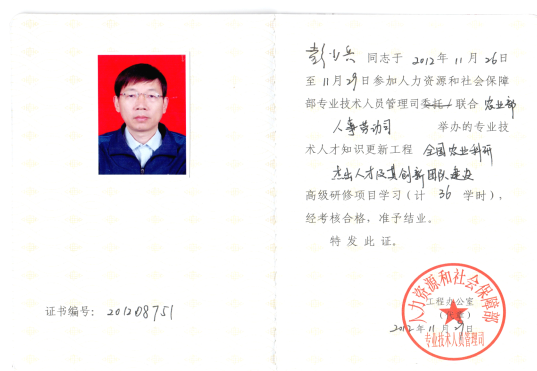 彭 兵 同志于 2012 年 11 月 26 日
至 11 月 29 日参加人力资源和社会保障
部专业技术人员管理司委托/联合 农业部
人事劳动司 举办的专业技
术人才知识更新工程 全国农业科研
杰出人才及其创新团队建设
高级研修项目学习(计 36 学时),
经考核合格,准予结业。
特发此证。
证书编号: 201208751
人力资源和社会保障部
工程办公室
2012 年 11 月 29 日
专业技术人员管理司